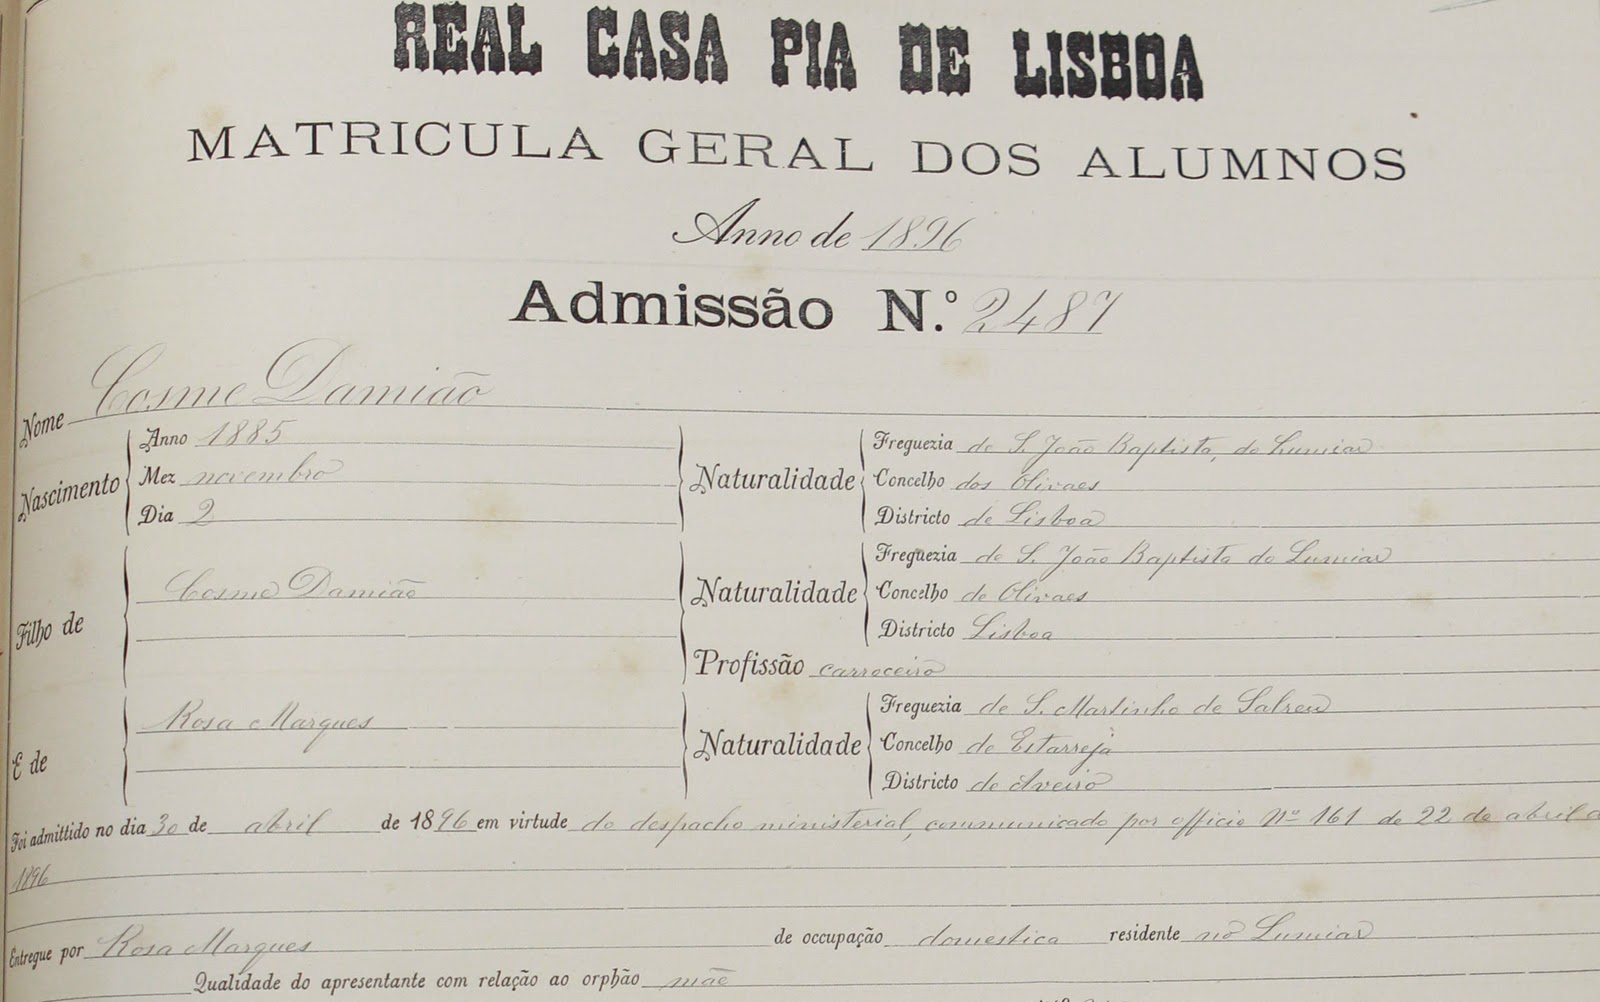 REAL CASA PIA DE LISBOA
MATRICULA GERAL DOS ALUMNOS
Anno de 1896
Admissão N.º 2487
Nome Cosme Damião
Nascimento
Anno 1885
Mez novembro
Dia 2
Naturalidade
Freguezia de S. João Baptista, do Lumiar
Concelho dos Olivaes
Districto de Lisboa
Filho de
Cosme Damião
Naturalidade
Freguezia de S. João Baptista do Lumiar
Concelho de Olivaes
Districto Lisboa
Profissão carroceiro
E de
Rosa Marques
Naturalidade
Freguezia de S. Martinho de Salreu
Concelho de Estarreja
Districto de Aveiro
Foi admittido no dia 30 de abril de 1896 em virtude do despacho ministerial, communicado por officio Nº 161 de 22 de abril
1896
Entregue por Rosa Marques de occupação domestica residente no Lumiar
Qualidade do apresentante com relação ao orphão mãe